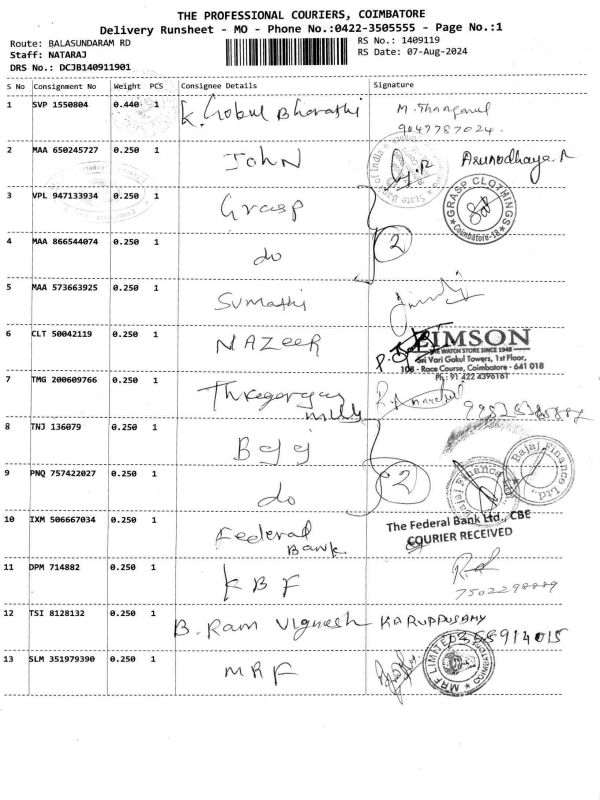 THE PROFESSIONAL COURIERS, COIMBATORE
Delivery Runsheet - MO - Phone No.:0422-3505555 - Page No.:1
Route: BALASUNDARAM RD
RS No.: 1409119
Staff: NATARAJ
RS Date: 07-Aug-2024
DRS No.: DCJB140911901
S No Consignment No Weight PCS Consignee Details Signature
1 SVP 1550804 0.440 1 K. Gobul Bharathi M. Thangavel
9047787024
2 MAA 650245727 0.250 1 John Arunodhaya. R
State Bank of India
3 VPL 947133934 0.250 1 Grasp
GRASP CLOTHINGS
Coimbatore-18
4 MAA 866544074 0.250 1 do 2
5 MAA 573663925 0.250 1 Sumathi
6 CLT 50042119 0.250 1 NAZeeR
ZIMSON
THE WATCH STORE SINCE 1948
Sri Vari Gokul Towers, 1st Floor,
108 - Race Course, Coimbatore - 641 018
Ph : 91 422 4396161
7 TMG 200609766 0.250 1
mills
8 TNJ 136079 0.250 1
Bajaj Finance Ltd.
9 PNQ 757422027 0.250 1 do 2
Bajaj Finance
10 IXM 506667034 0.250 1 Federal
Bank
The Federal Bank Ltd., CBE
COURIER RECEIVED
11 DPM 714882 0.250 1 KBF
7502298889
12 TSI 8128132 0.250 1 B. Ram Vignesh KARUPPUSAMY
13 SLM 351979390 0.250 1 MRF
MRF LIMITED
COIMBATORE